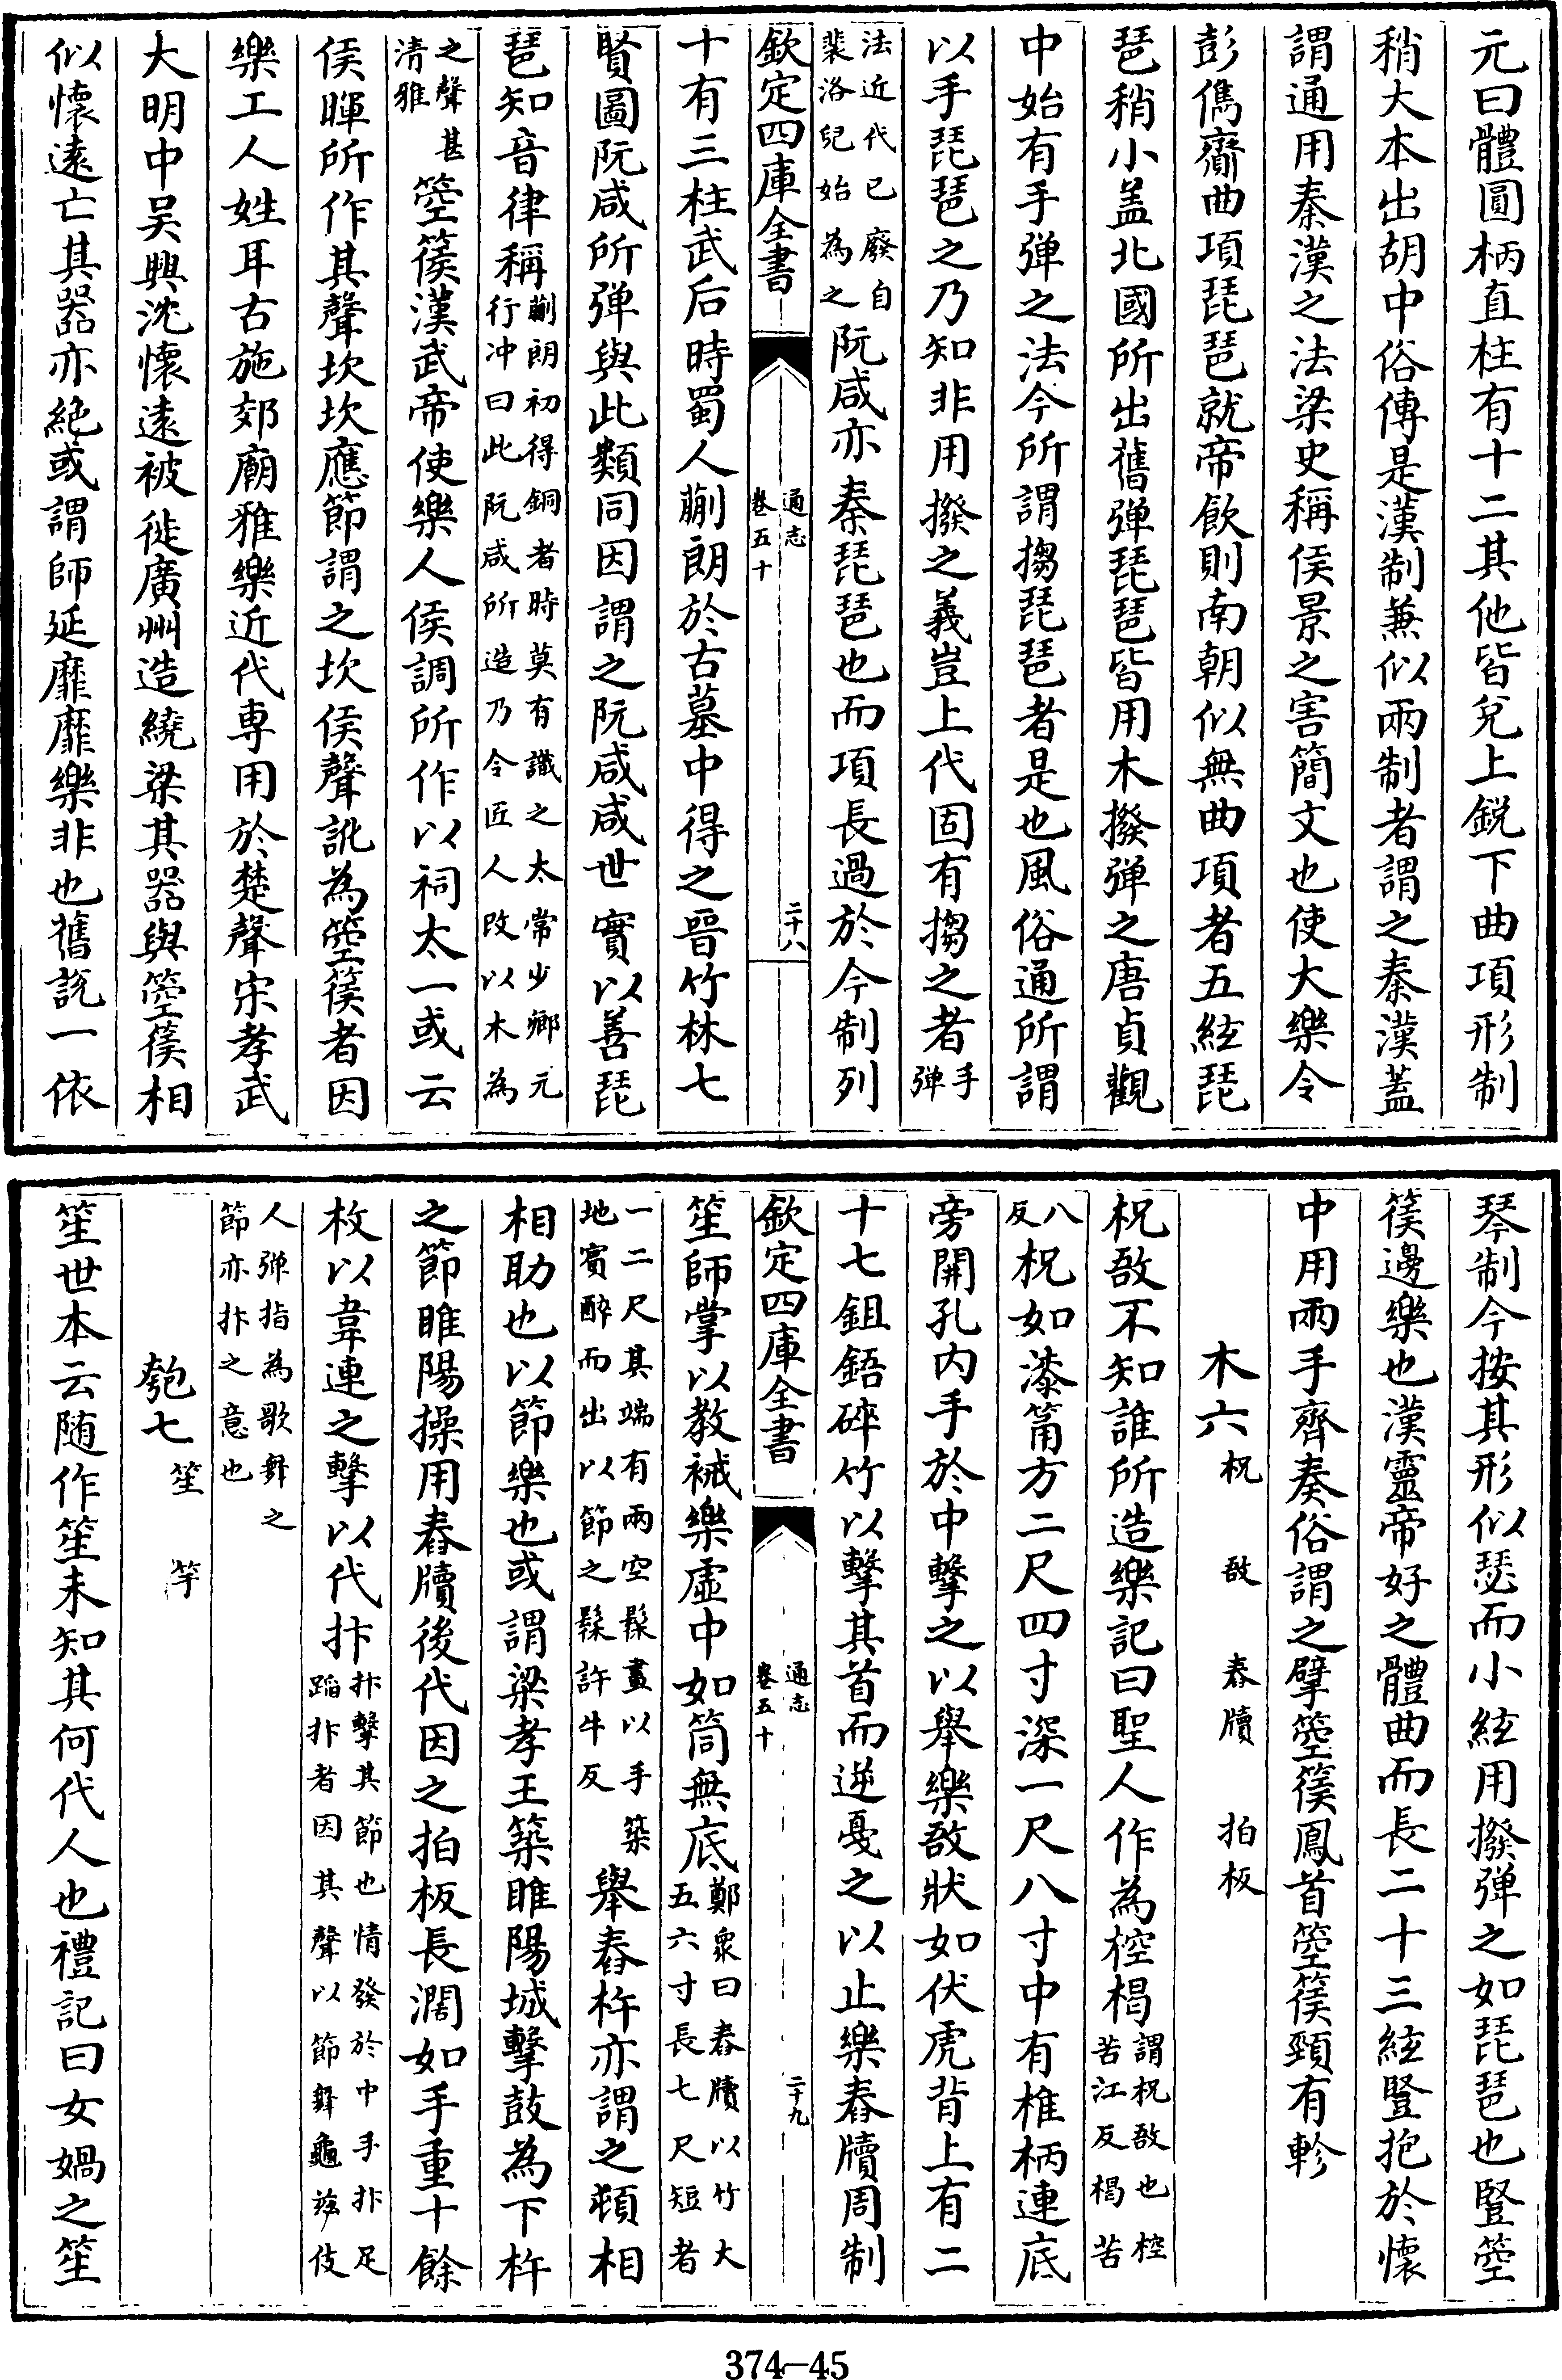 元曰體圓柄直柱有十二其他皆兌上鋭下曲項形制
稍大本出胡中俗傳是漢制兼似兩制者謂之秦漢蓋
謂通用秦漢之法梁史稱侯景之害簡文也使大樂令
彭儁齎曲項琵琶就帝飲則南朝似無曲項者五絃琵
琶稍小盖北國所出舊弹琵琶皆用木撥弹之唐貞觀
中始有手弹之法今所謂搊琵琶者是也風俗通所謂
以手琵琶之乃知非用撥之義豈上代固有搊之者手弹
法近代已廢自裴洛兒始為之阮咸亦秦琵琶也而項長過於今制列
欽定四庫全書 通志卷五十 二十八
十有三柱武后時蜀人蒯朗於古墓中得之晉竹林七
賢圖阮咸所弹與此類同因謂之阮咸咸世實以善琵
琶知音律稱蒯朗初得銅者時莫有識之太常少卿元行冲曰此阮咸所造乃令匠人改以木為
之聲甚清雅箜篌漢武帝使樂人侯調所作以祠太一或云
侯暉所作其聲坎坎應節謂之坎侯聲訛為箜篌者因
樂工人姓耳古施郊廟雅樂近代専用於楚聲宋孝武
大明中吴興沈懷遠被徙廣州造繞梁其器與箜篌相
似懷遠亡其器亦絶或謂師延靡靡樂非也舊説一依
琴制今按其形似瑟而小絃用撥弹之如琵琶也豎箜
篌邊樂也漢靈帝好之體曲而長二十三絃豎抱於懷
中用兩手齊奏俗謂之擘箜篌鳳首箜篌頸有軫
木六 柷 敔 舂牘 拍板
柷敔不知誰所造樂記曰聖人作為椌楬謂柷敔也椌苦江反楬苦
八反柷如漆筩方二尺四寸深一尺八寸中有椎柄連底
旁開孔内手於中擊之以舉樂敔狀如伏虎背上有二
十七鉏鋙碎竹以擊其首而逆戞之以止樂舂牘周制
欽定四庫全書 通志卷五十 二十九
笙師掌以教祴樂虚中如筒無底鄭衆曰舂牘以竹大五六寸長七尺短者
一二尺其端有兩空髹畫以手築地賓醉而出以節之髹許牛反舉舂杵亦謂之頓相
相助也以節樂也或謂梁孝王築睢陽城擊鼓為下杵
之節睢陽操用舂牘後代因之拍板長濶如手重十餘
枚以韋連之擊以代抃抃擊其節也情發於中手抃足蹈抃者因其聲以節舞龜兹伎
人弹指為歌舞之節亦抃之意也
匏七 笙 竽
笙世本云随作笙未知其何代人也禮記曰女媧之笙
374-45